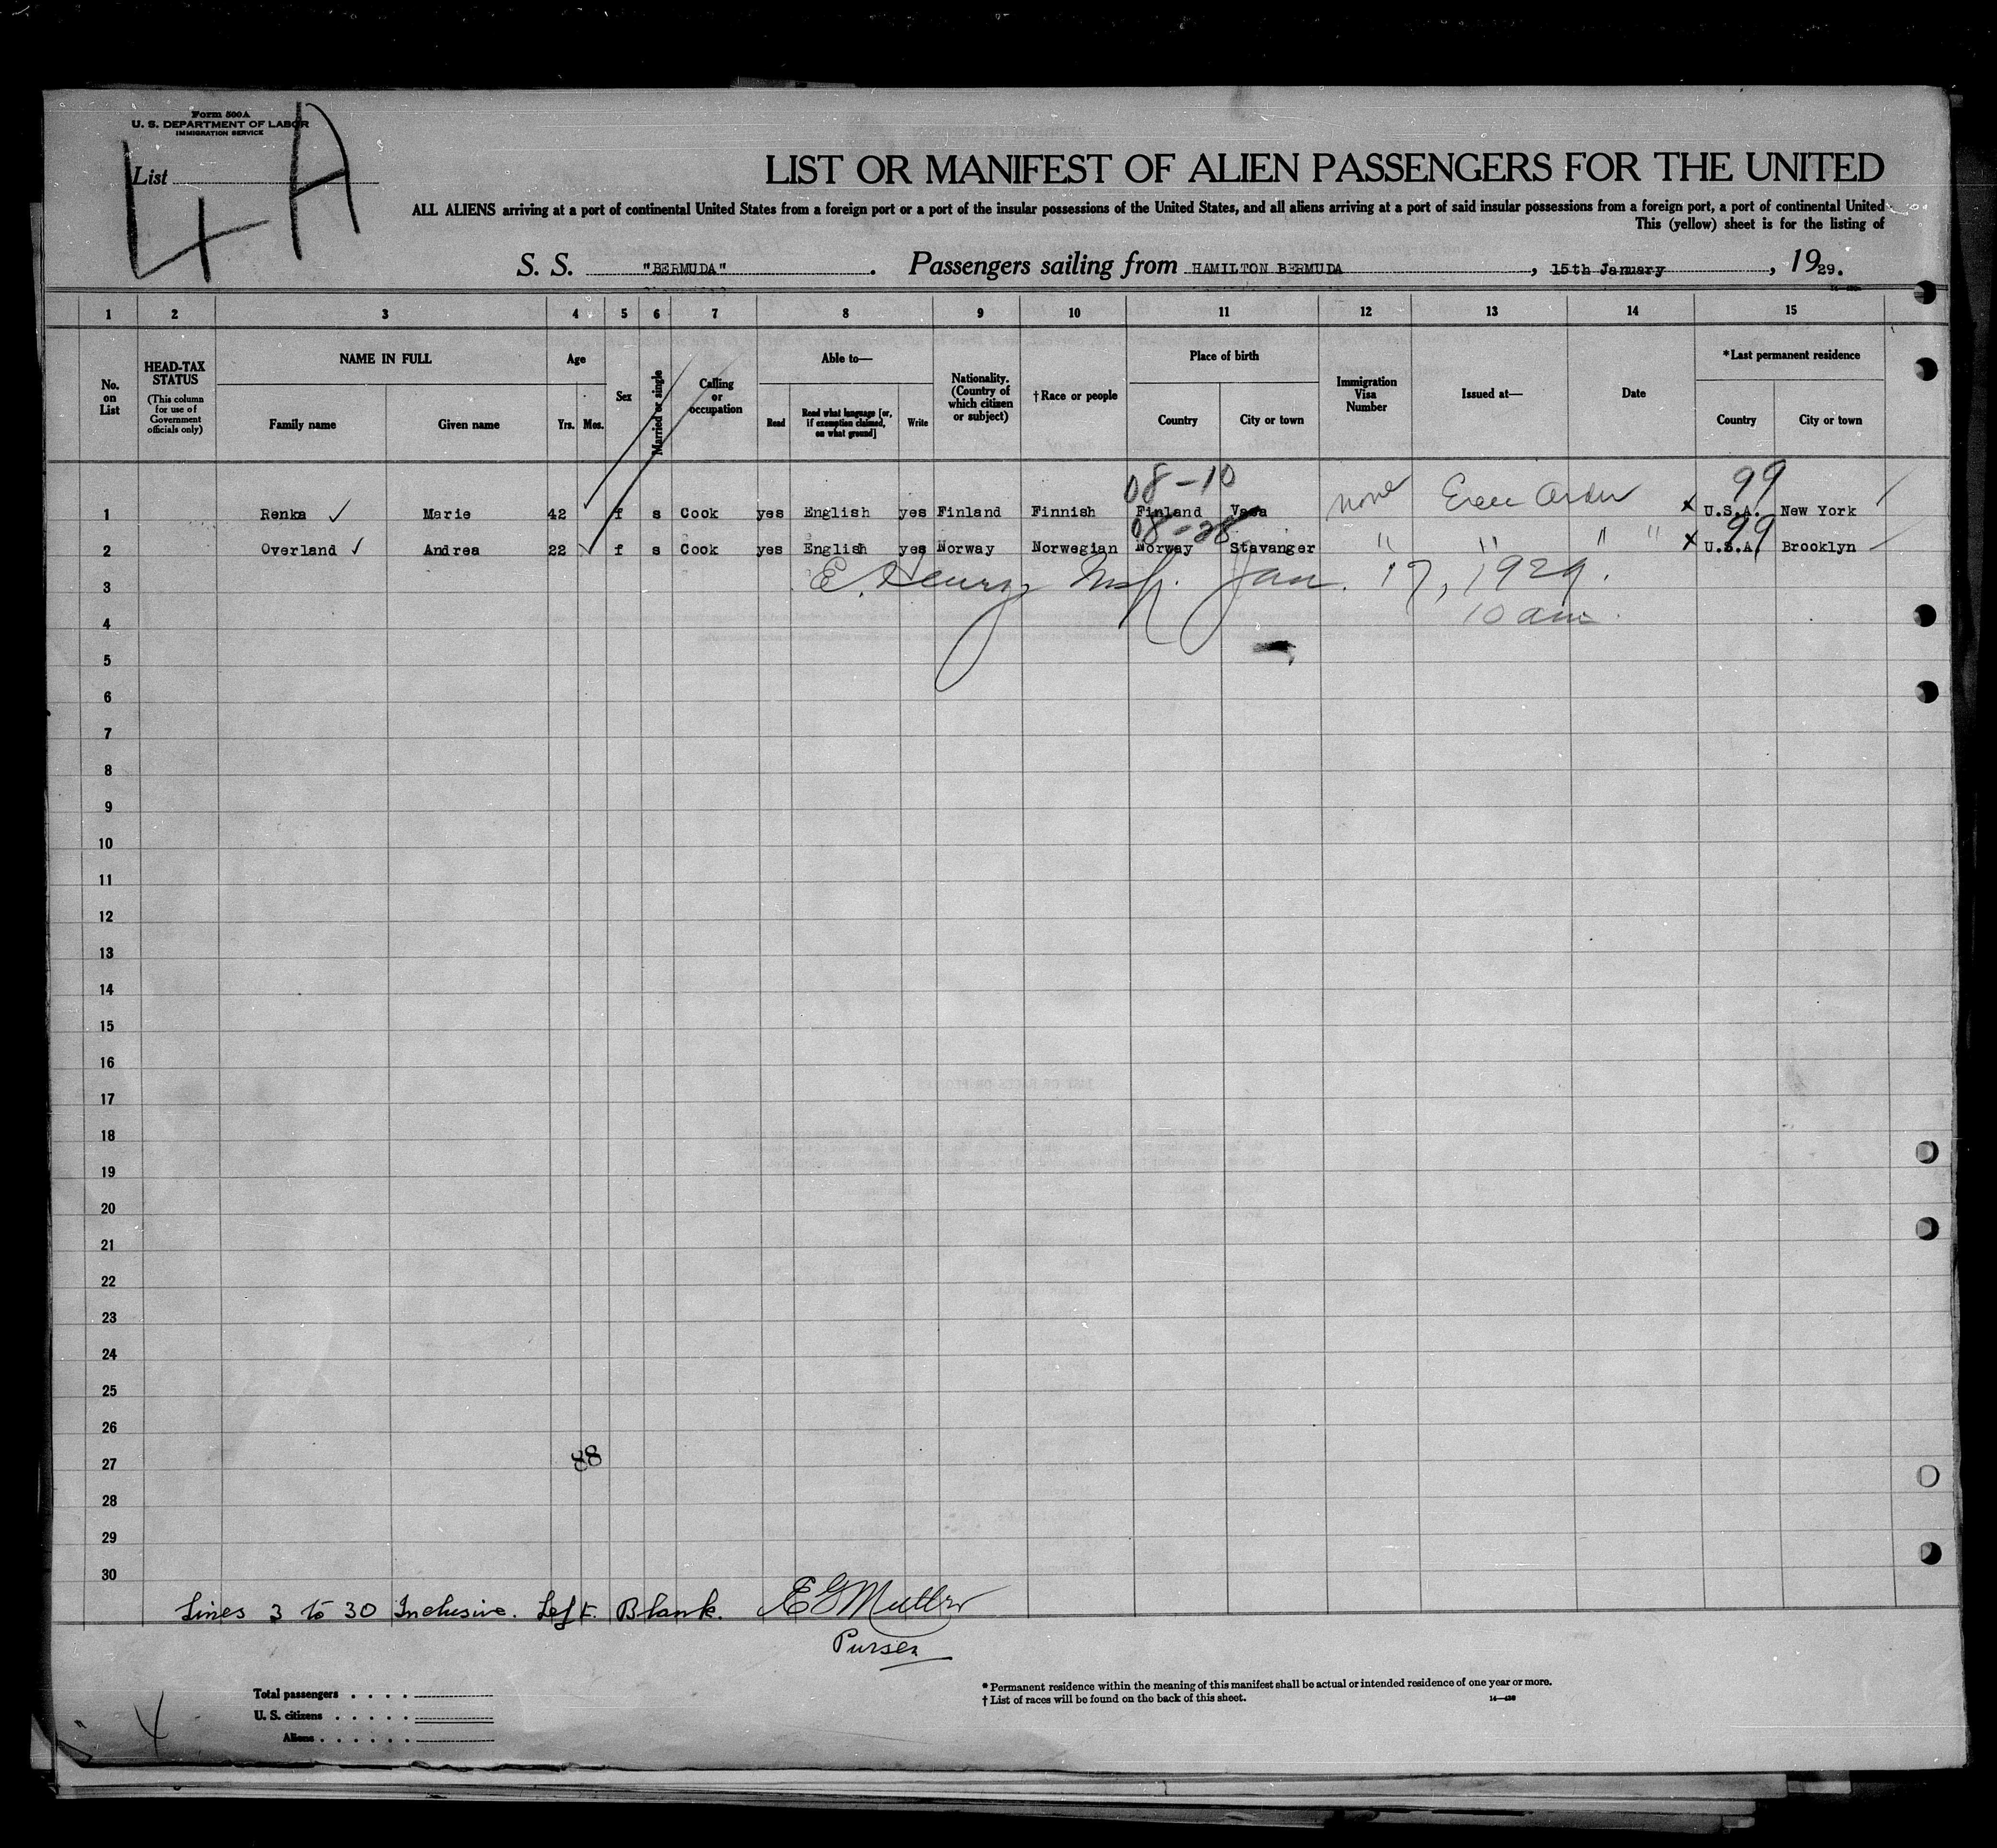 Form 500A
U. S. DEPARTMENT OF LABOR
IMMIGRATION SERVICE
List
4 A
LIST OR MANIFEST OF ALIEN PASSENGERS FOR THE UNITED
ALL ALIENS arriving at a port of continental United States from a foreign port or a port of the insular possessions of the United States, and all aliens arriving at a port of said insular possessions from a foreign port, a port of continental United
This (yellow) sheet is for the listing of
S. S. "BERMUDA" . Passengers sailing from HAMILTON BERMUDA , 15th January , 1929.
1 2 3 4 5 6 7 8 9 10 11 12 13 14 15
No. on List
HEAD-TAX STATUS (This column for use of Government officials only)
NAME IN FULL
Family name Given name
Age
Yrs. Mos.
Sex
Married or single
Calling or occupation
Able to—
Read Read what language [or, if exemption claimed, on what ground] Write
Nationality. (Country of which citizen or subject)
†Race or people
Place of birth
Country City or town
Immigration Visa Number
Issued at—
Date
*Last permanent residence
Country City or town
08-10 99
1 Renka ✓ Marie 42 f s Cook yes English yes Finland Finnish Finland Vasa none x U.S.A. New York
08-28 99
2 Overland ✓ Andrea 22 f s Cook yes English yes Norway Norwegian Norway Stavanger " " " " x U.S.A. Brooklyn
3 E. Henry Insp. Jan. 17, 1929.
4 10 am.
5
6
7
8
9
10
11
12
13
14
15
16
17
18
19
20
21
22
23
24
25
26
27 88
28
29
30
Lines 3 to 30 Inclusive. Left Blank.
Purser
Total passengers . . . .
U. S. citizens . . . . .
Aliens . . . . . .
* Permanent residence within the meaning of this manifest shall be actual or intended residence of one year or more.
† List of races will be found on the back of this sheet.
14—430